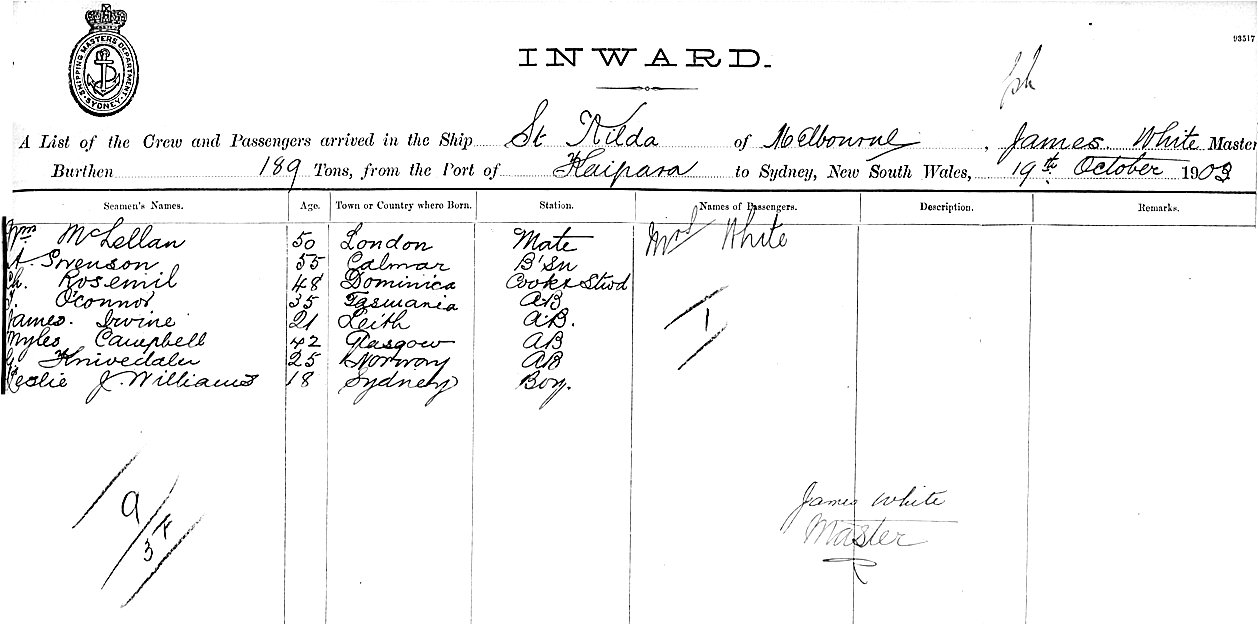 SHIPPING MASTERS DEPARTMENT SYDNEY
93517
INWARD.
A List of the Crew and Passengers arrived in the Ship St Kilda of Melbourne, James White Master
Burthen 189 Tons, from the Port of Kaipara to Sydney, New South Wales, 19th October 1903
Seamen's Names. Age. Town or Country where Born. Station. Names of Passengers. Description. Remarks.
Wm McLellan 50 London Mate Mrs White
A. Sorenson 55 Calmar B'Sn
Ch. Rosemil 48 Dominica Cook & Stwd
O'Connor 35 Tasmania AB
James. Irvine 21 Leith AB.
Myles Campbell 42 Glasgow AB
Knivedalen 25 Norway AB
Leslie J. Williams 18 Sydney Boy.
1
9
James White
Master